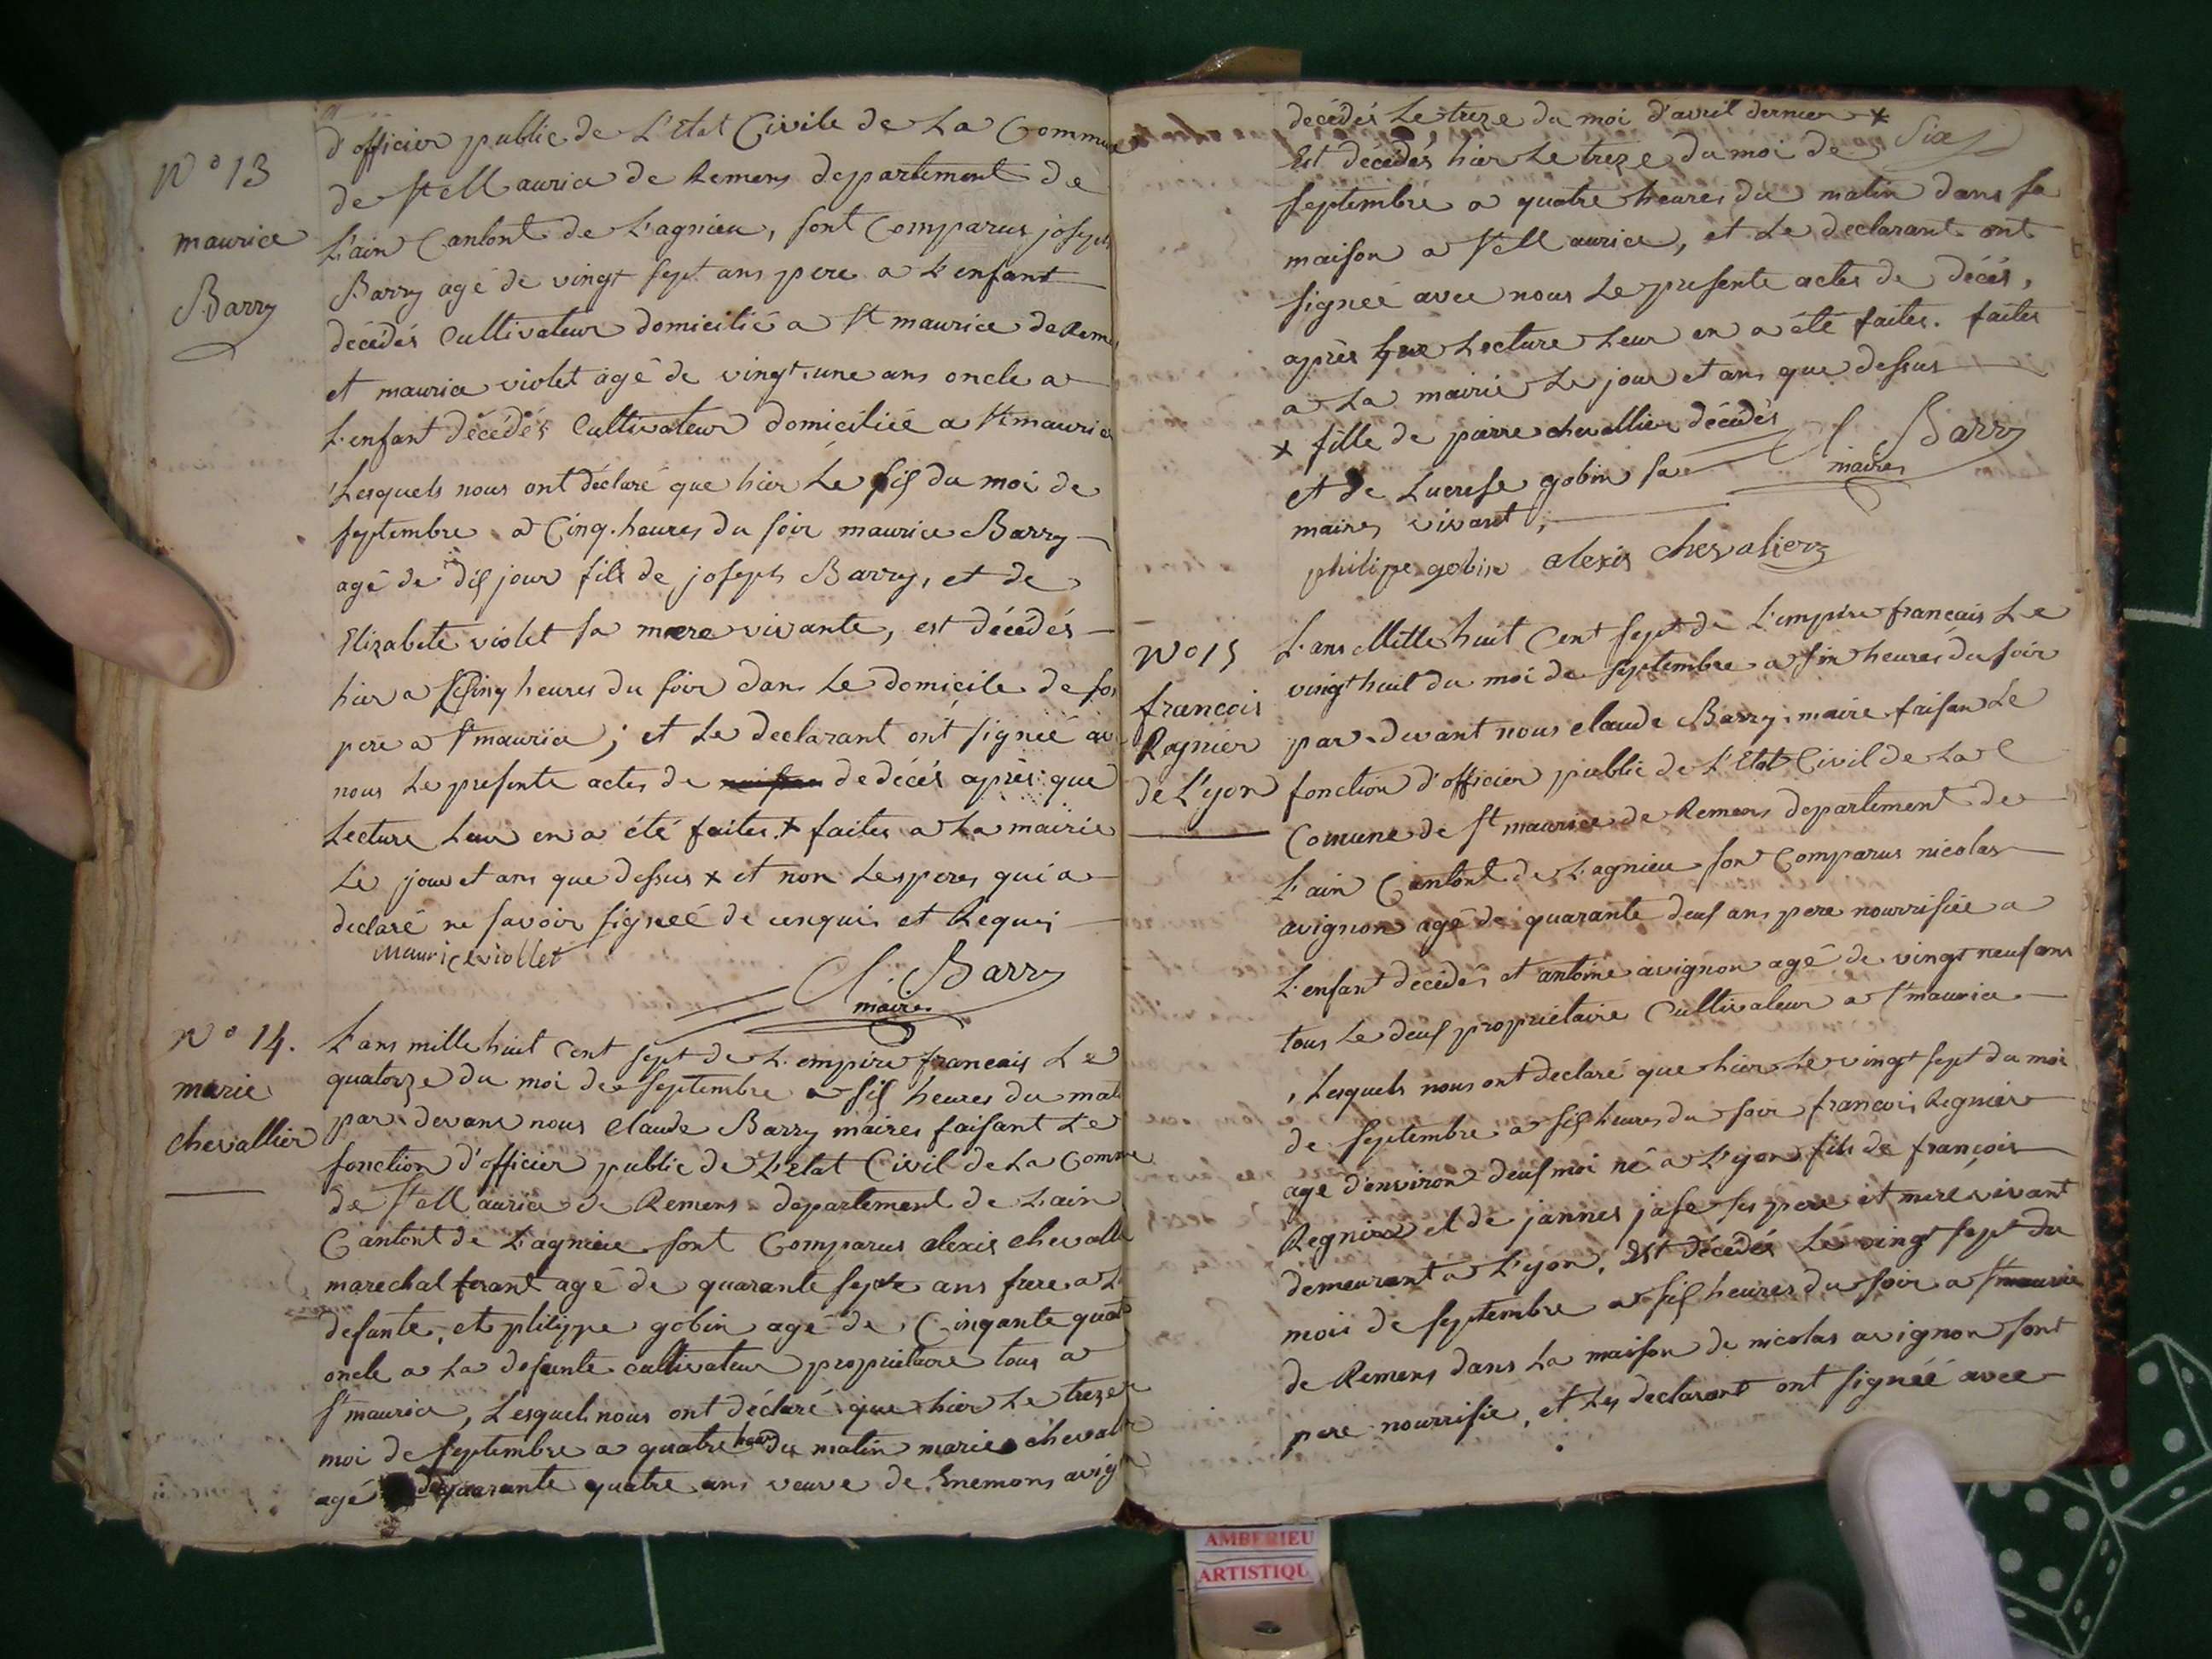 N° 13
maurice
Barry
d'officier public de L'Etat Civile de La Commune
de St Maurice de Remens departement de
L'ain Cantont de L'agnieu, sont Comparus joseph
Barry agé de vingt sept ans pere a L'enfant
décédés Cultivateur domicilié a St maurice de Reme
et maurice violet agé de vingt une ans oncle a
L'enfant décédés Cultivateur domiciliée a St maurice
Lesquels nous ont déclaré que hier Le sis du moi de
septembre a Cinq heures du soir maurice Barry
agé de dis jour fils de joseph Barry, et de
Elizabete violet sa mere vivante, est décédés
hier a Cinq heures du soir dans Le domicile de son
pere a St maurice ; et Le declarant ont signée av
nous Le presente actes de de décés après que
Lecture Leur en a été faites x faites a La mairie
Le jour et ans que dessus x et non Les peres qui a
declaré ne savoir signeé de cenquis et Requis
Maurice viollet
Cl. Barry
maires
N° 14.
marie
chevallier
L'ans mille huit Cent sept de L'empire francais Le
quatorze du moi de septembre a sis heures du mat
par devans nous claude Barry maires faisant Le
fonction d'officier public de L'Etat Civil de La Comme
de St Maurice de Remens departement de L'ain
Cantont de L'agnieu sont Comparus alexis chevalle
marechal ferant agé de quarante septe ans frere a L
defante, et philippe gobin agé de Cinqante quat
oncle a La defunte cultivateur proprietaire tous a
St maurice, Lesquels nous ont déclaré que hier Le treze
moi de septembre a quatre heure du matin marie cheval
agé de quarante quatre ans veuve de Enemons avig
décédés Le treze du moi d'avril dernier x
Six
Est décédés hier Le treze du moi de
septembre a quatre heures du matin dans sa
maison a St Maurice, et Le declarant ont
signeé avec nous Le presente actes de décés,
après que Lecture Leur en a été faites. faites
a La mairie Le jour et ans que dessus
x fille de pierre chevallier décédés
et de Lucresse gobin sa
maires vivant,
Cl. Barry
maires
philippe gobin alexis chevalierz
N° 15
francois
Regnier
de L'yon
L'ans Mille huit Cent sept de L'empire français Le
vingt huit du moi de septembre a sin heures du soir
par devant nous claude Barry maire faisan Le
fonction d'officier public de L'Etat Civil de La C
Comune de St maurice de Remens departement de
L'ain Cantont de L'agnieu son Comparus nicolas
avignon agé de quarante deus ans pere nourrisiée a
L'enfant décédés et antoine avignon agé de vingt neuf ans
tous Le deus proprietaire Cultivateur a St maurice
, Lesquels nous ont declaré que hier Le vingt sept du moi
de septembre a sis heures du soir francois Regnier
age d'environ deus moi né a L'yon fils de françois
Regnier et de jannes jase ses pere et mere vivant
demeurant a L'yon, Est décédés Le vingt sept du
mois de septembre a sis heures du soir a St maurice
de Remens dans La maison de nicolas avignon sont
pere nourrisie, et Les declarant ont signéé avec
AMBERIEU
ARTISTIQU